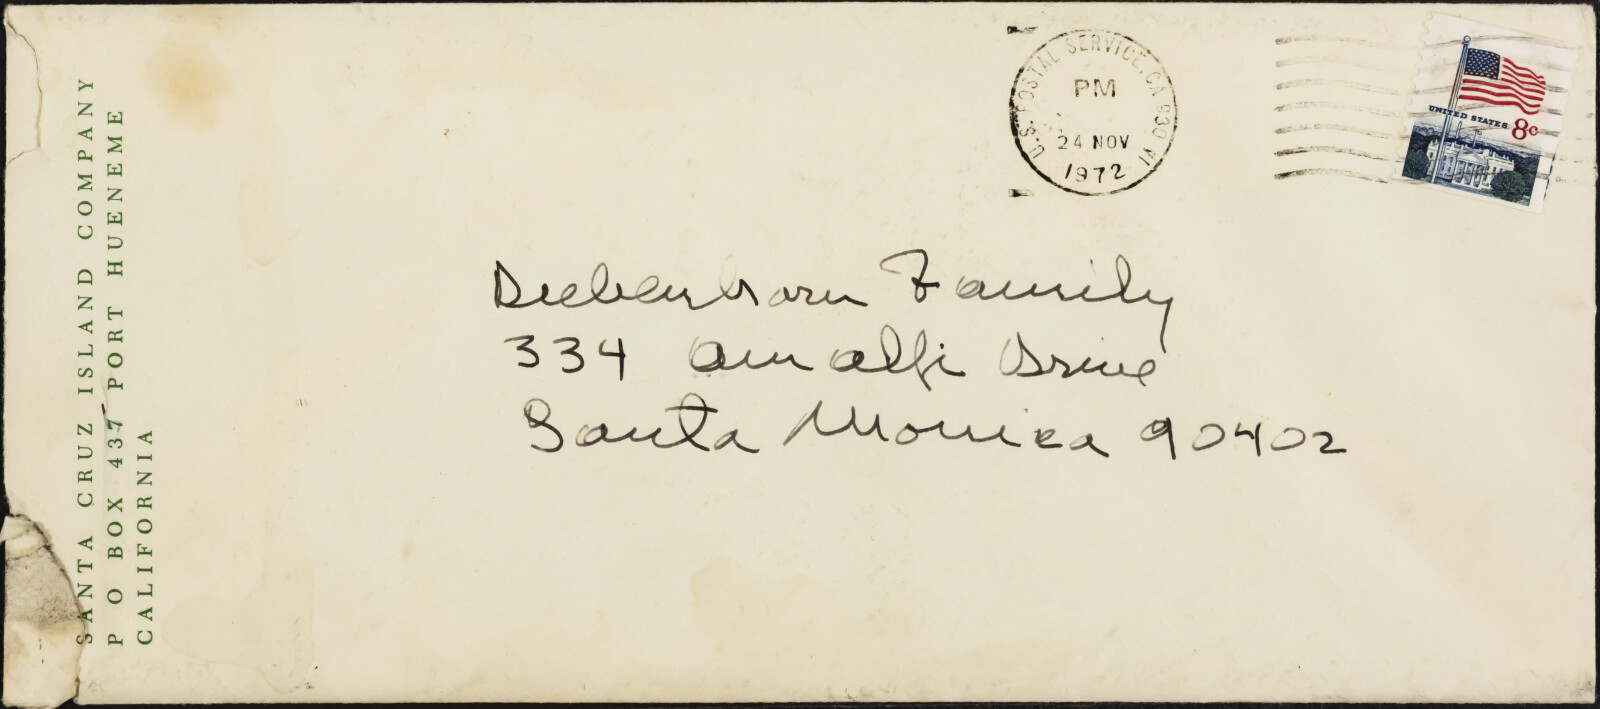 SANTA CRUZ ISLAND COMPANY
P O BOX 437 PORT HUENEME
CALIFORNIA
U.S. POSTAL SERVICE, CA 930 VI
PM
24 NOV
1972
UNITED STATES 8c
Diebenkorn Family
334 Amalfi Drive
Santa Monica 90402